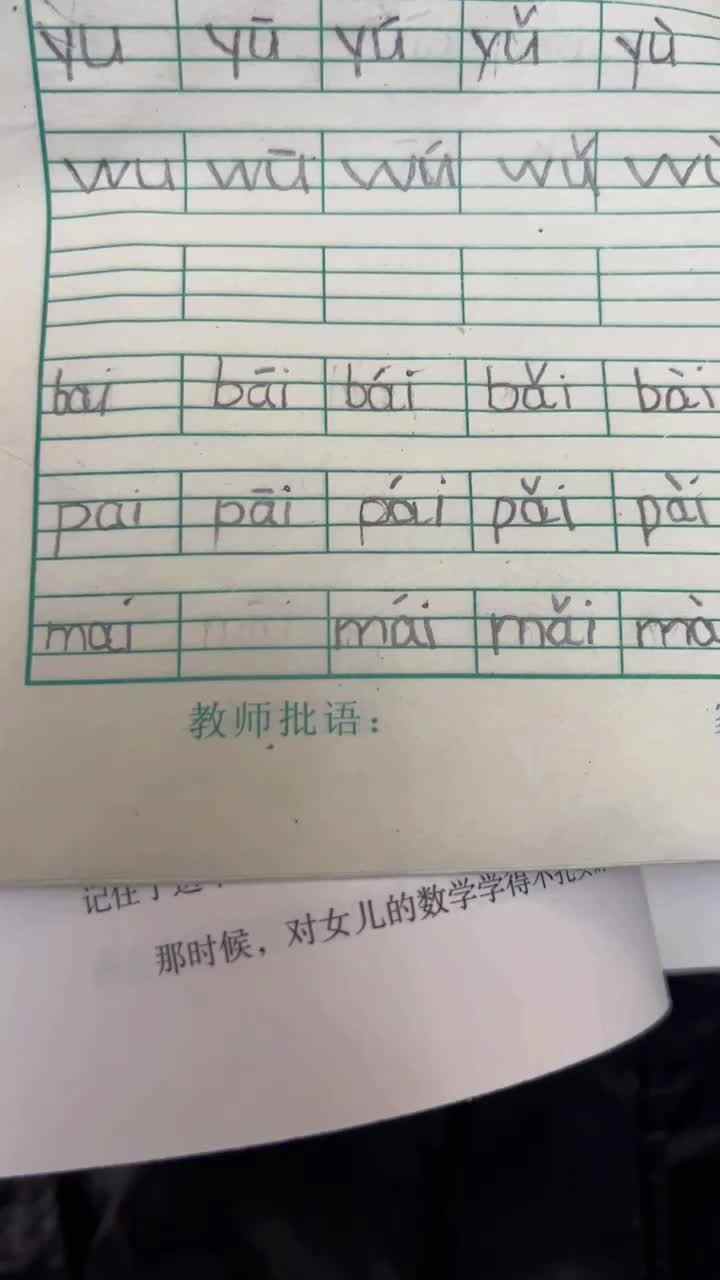 yu yū yú yǔ yù
wu wū wú wǔ wù
bai bāi bái bǎi bài
pai pāi pái pǎi pài
mai māi mái mǎi mà
教师批语：
记住了这
那时候，对女儿的数学学得不扎